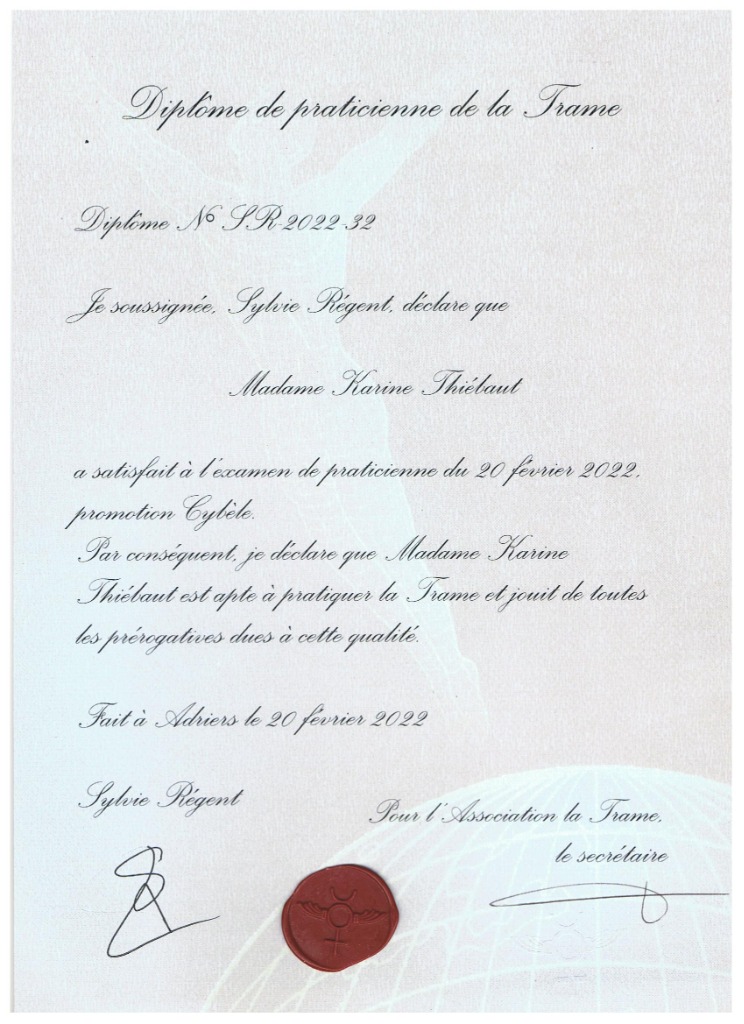 Diplôme de praticienne de la Trame
Diplôme N° SR-2022-32
Je soussignée, Sylvie Régent, déclare que
Madame Karine Thiébaut
a satisfait à l'examen de praticienne du 20 février 2022,
promotion Cybèle.
Par conséquent, je déclare que Madame Karine
Thiébaut est apte à pratiquer la Trame et jouit de toutes
les prérogatives dues à cette qualité.
Fait à Adriers le 20 février 2022
Sylvie Régent
Pour l'Association la Trame,
le secrétaire